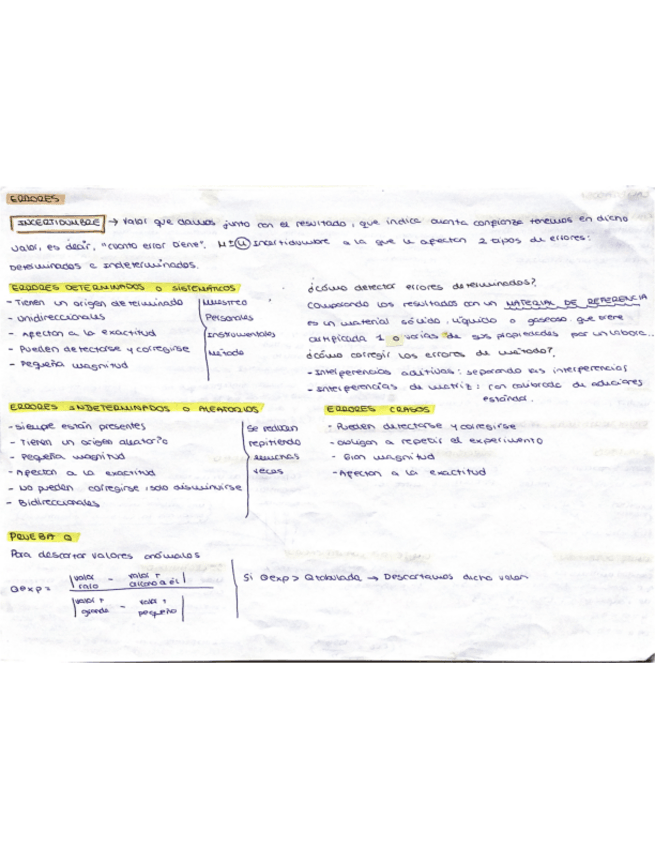 ERRORES
INCERTIDUMBRE → Valor que damos junto con el resultado, que indica cuanta confianza tenemos en dicho
valor, es decir, "cuanto error tiene". M ± U Incertidumbre a la que le afectan 2 tipos de errores:
Determinados e Indeterminados.
ERRORES DETERMINADOS O SISTEMÁTICOS
- Tienen un origen determinado
- Unidireccionales
- Afectan a la exactitud
- Pueden detectarse y corregirse
- Pequeña magnitud
Muestreo
Personales
Instrumentales
Método
¿Cómo detectar errores determinados?
Comparando los resultados con un MATERIAL DE REFERENCIA
es un material sólido, líquido o gaseoso que tiene
certificada 1 o varias de sus propiedades por un labora...
¿Cómo corregir los errores de método?
- Interferencias aditivas: separando las interferencias
- Interferencias de matriz: con calibrado de adiciones
estándar.
ERRORES INDETERMINADOS O ALEATORIOS
- Siempre están presentes
- Tienen un origen aleatorio
- Pequeña magnitud
- Afectan a la exactitud
- No pueden corregirse, solo disminuirse
- Bidireccionales
Se reducen
repitiendo
muchas
veces
ERRORES CRASOS
- Pueden detectarse y corregirse
- Obligan a repetir el experimento
- Gran magnitud
- Afectan a la exactitud
PRUEBA Q
Para descartar valores anómalos
Qexp = |valor raro - valor + cercano a él|
|valor + grande - valor + pequeño|
Si Qexp > Qtabulada → Descartamos dicho valor